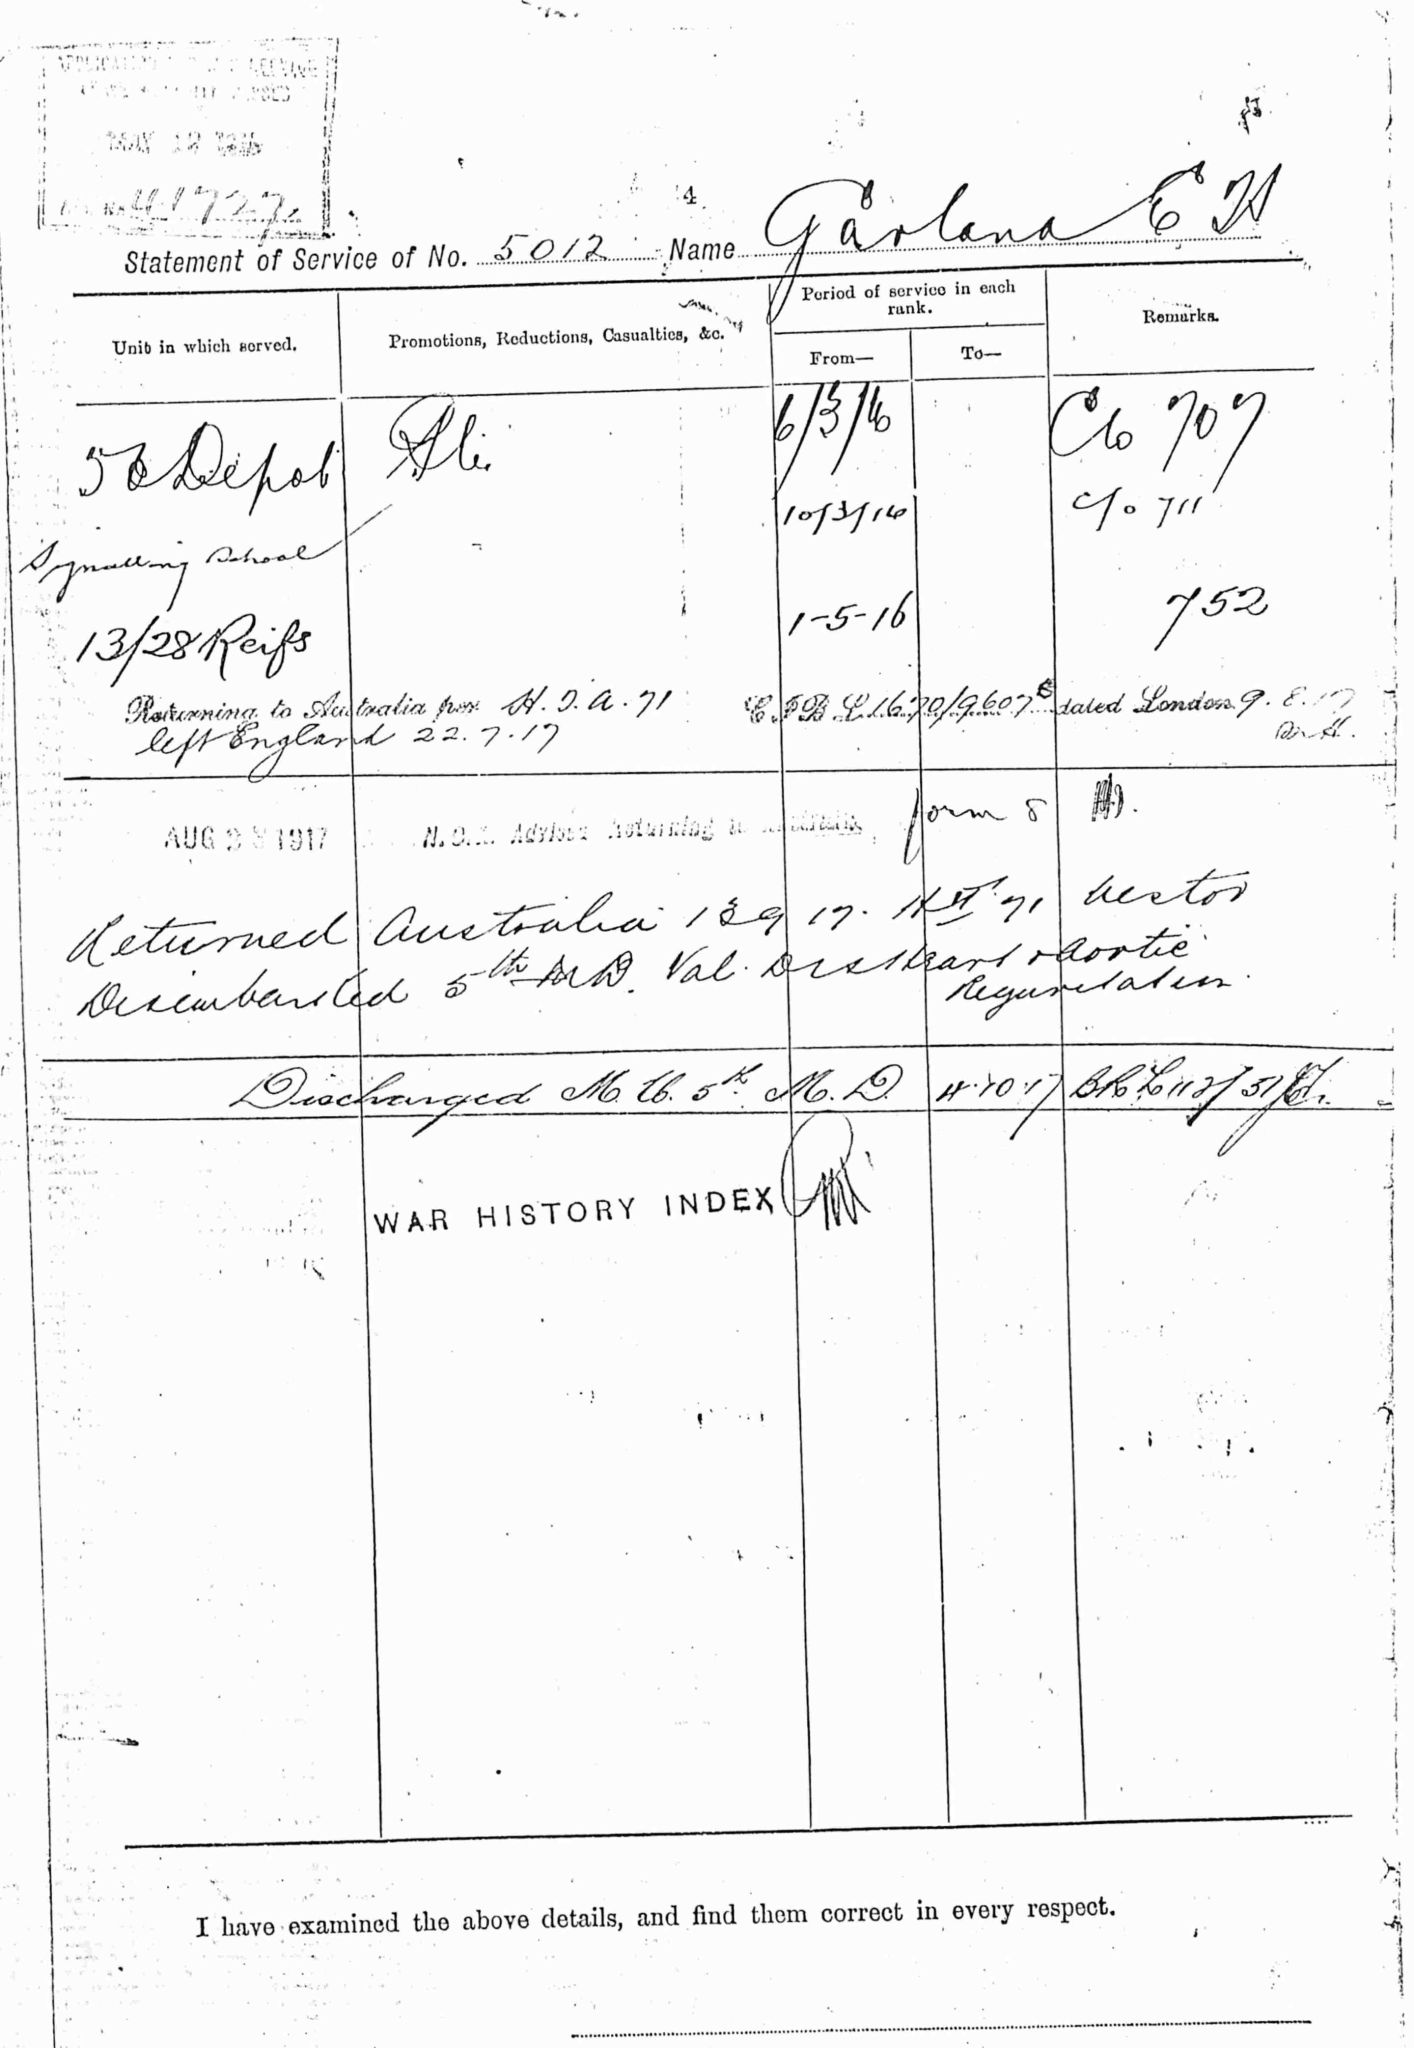 4
Statement of Service of No. 5012 Name Garland E H
Unit in which served.
Promotions, Reductions, Casualties, &c.
Period of service in each rank.
From—
To—
Remarks.
Depot Pte. 6/3/16 C/o 707
Signalling School 10/3/16 C/o 711
13/28 Reifs 1-5-16 752
Returning to Australia per H.T.A. 71 dated London 9. 8. 17
left England 22.7.17
form 8
AUG 1917 Returning
Returned Australia 13 9 17. HT 71 Nestor
Disembarked 5th M.D. Val. Dis Heart & Aortic
Regurgitation.
Discharged M.U. 5th M.D. 4.10.17
WAR HISTORY INDEX
I have examined the above details, and find them correct in every respect.